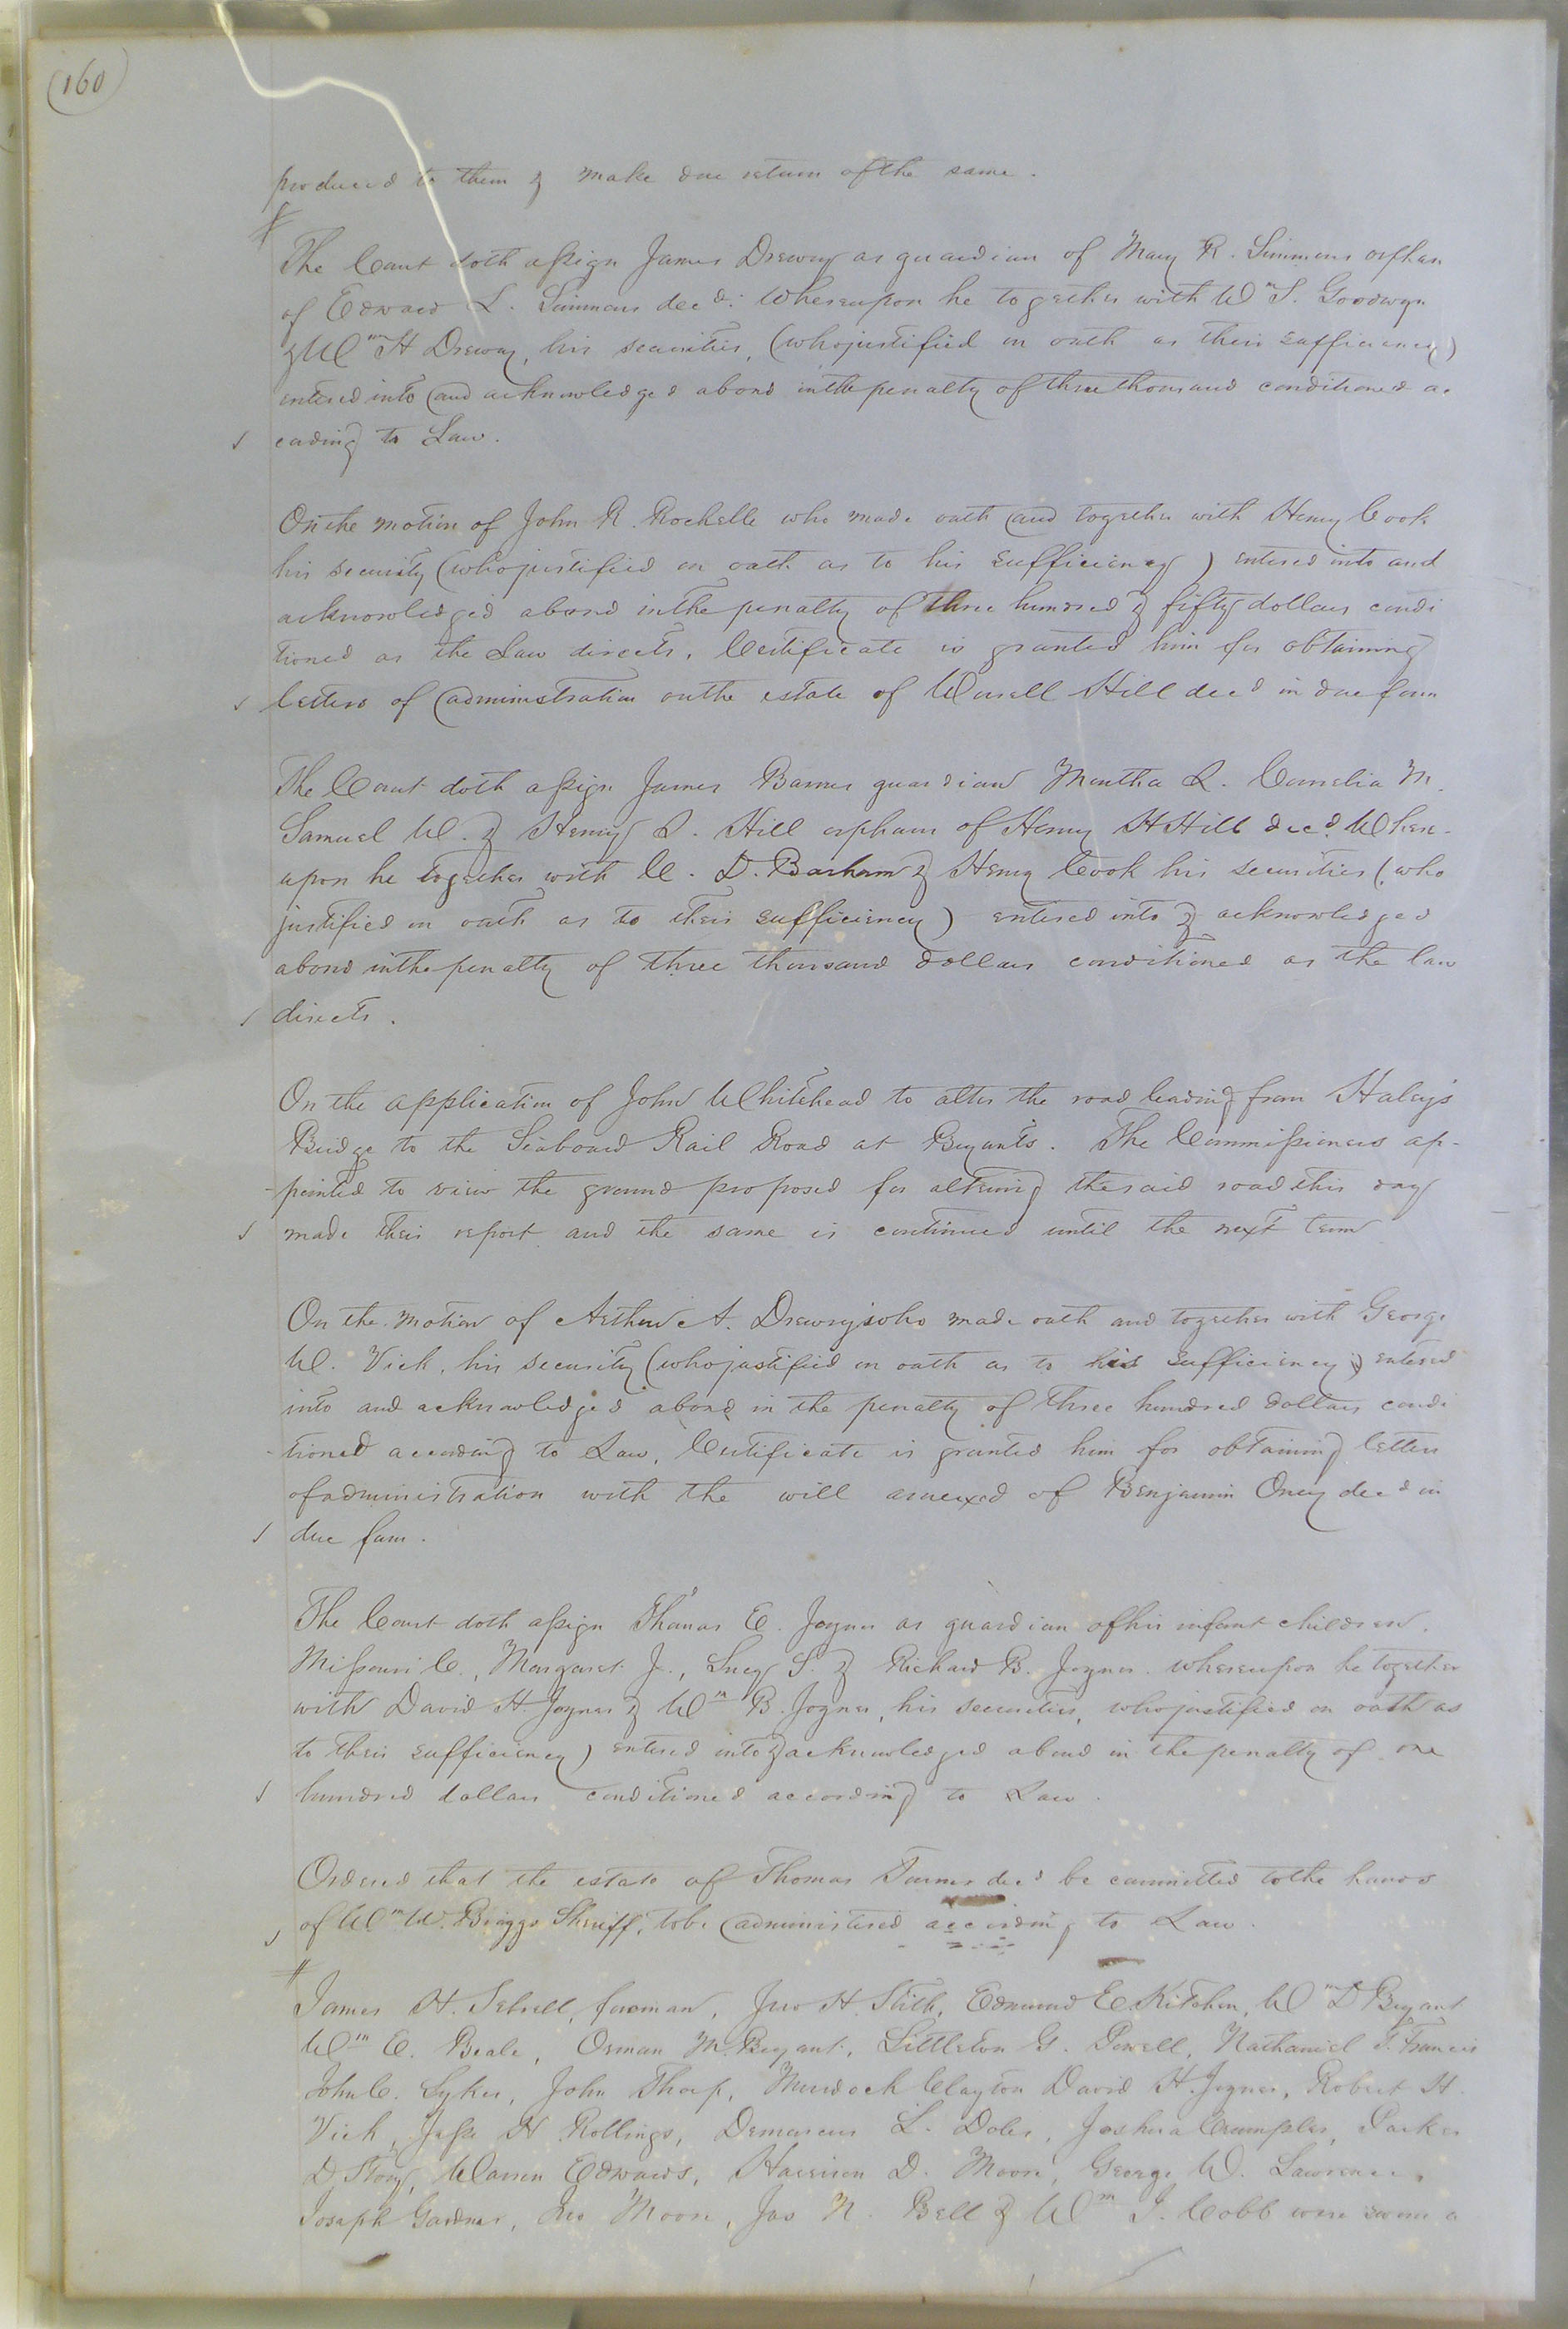 (160)
produced to them & make due return of the same.
The Court doth assign James Drewry as guardian of Mary R. Simmons orphan
of Edward L. Simmons decd: Whereupon he together with Wm S. Goodwyn
& Wm H Drewry, his securities, (who justified on oath as their sufficiency)
entered into and acknowledged a bond in the penalty of three thousand conditioned ac
cording to Law.
On the motion of John R. Rochelle who made oath and together with Henry Cook
his security (who justified on oath as to his sufficiency) entered into and
acknowledged a bond in the penalty of three hundred & fifty dollars condi
tioned as the Law directs, Certificate is granted him for obtaining
letters of administration on the estate of Hill decd in due form
The Court doth assign James Barnes guardian Martha L. Cornelia M.
Samuel W. & Henry Hill orphans of Henry H Hill decd. When-
upon he together with C. D. Barham & Henry Cook his securities (who
justified on oath as to their sufficiency) entered into & acknowledged
a bond in the penalty of three thousand dollars conditioned as the law
directs.
On the application of John Whitehead to alter the road leading from Haley's
Bridge to the Seaboard Rail Road at Bryants. The Commissioners ap-
-pointed to view the ground proposed for altering the said road this day
made their report and the same is continued until the next term
On the motion of Arthur A. Drewry who made oath and together with George
W. Vick, his security (who justified on oath as to his sufficiency) entered
into and acknowledged a bond in the penalty of three hundred dollars condi
-tioned according to Law, Certificate is granted him for obtaining letters
of administration with the will annexed of Benjamin Oney decd in
due form.
The Court doth assign Thomas E. Joyner as guardian of his infant children.
Missouri C., Margaret J., Lucy S. & Richard B. Joyner. whereupon he together
with David H. Joyner & Wm B. Joyner, his securities, who justified on oath as
to their sufficiency) entered into & acknowledged a bond in the penalty of one
hundred dollars conditioned according to Law.
Ordered that the estate of Thomas Turner decd be committed to the hands
of Wm W. Briggs Sheriff, to be administered according to Law.
James H. Sebrell, foreman, Jno H. Stith, Edmund E Kitchen, Wm D Bryant
Wm E. Beale, Orman M. Bryant, Littleton G. Powell, Nathaniel T. Francis
John C. Sykes, John Thorp, Murdoch Clayton David H. Joyner, Robert H.
Vick, Jesse H Rollings, Demarcus L. Doles, Joshua Crumpler, Parker
D. Story, Warren Edwards, Harrison D. Moore, George W. Lawrence,
Joseph Gardner, Moore, Jas N. Bell & Wm J. Cobb were sworn a